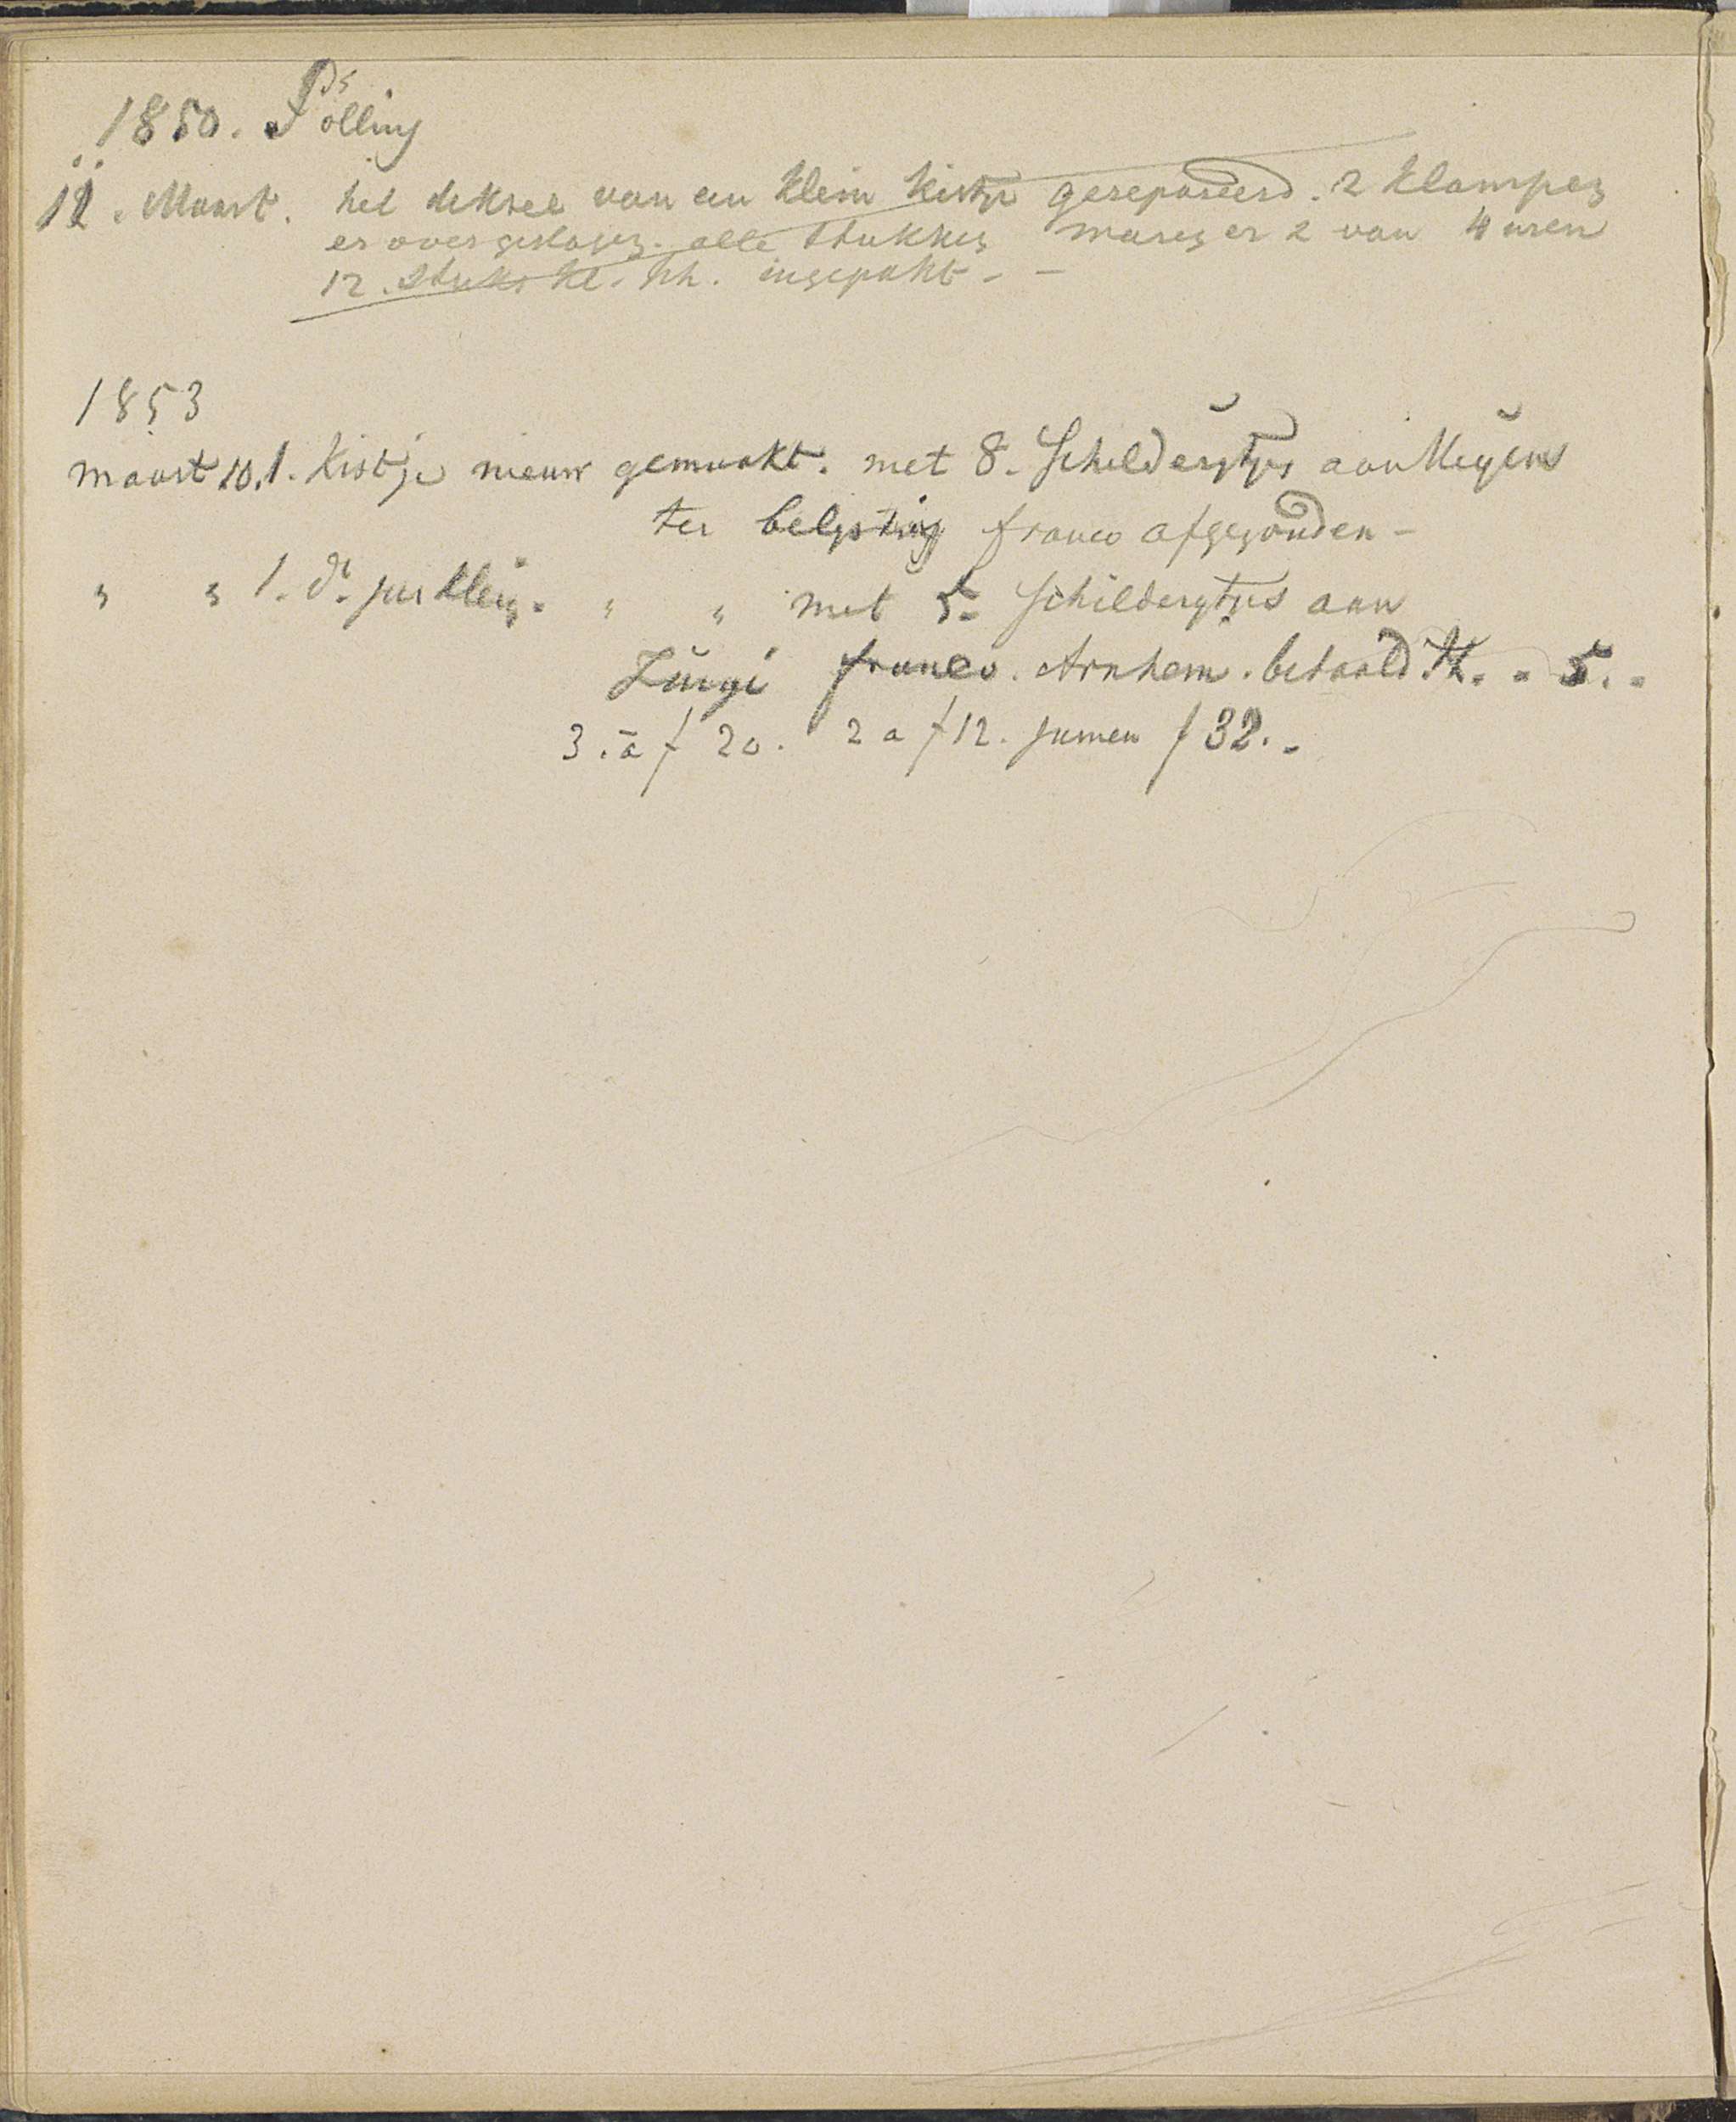 1850. Polling
11. Maart. het deksel van een klein kistje gerepareerd. 2 klampen
er over geslagen. alle stukken waren er 2 van 4 uren
12. stuks kl. sch. ingepakt - -
1853
maart 10. 1. kistje nieuw gemaakt. met 8. Schilderytjes aan Meyens
ter franco afgezonden -
" " 1. do. klein. " " met 5. schilderytjes aan
franco. Arnhem. betaald . - 5. -
3. a f 20. 2 a f 12. samen f 32. -